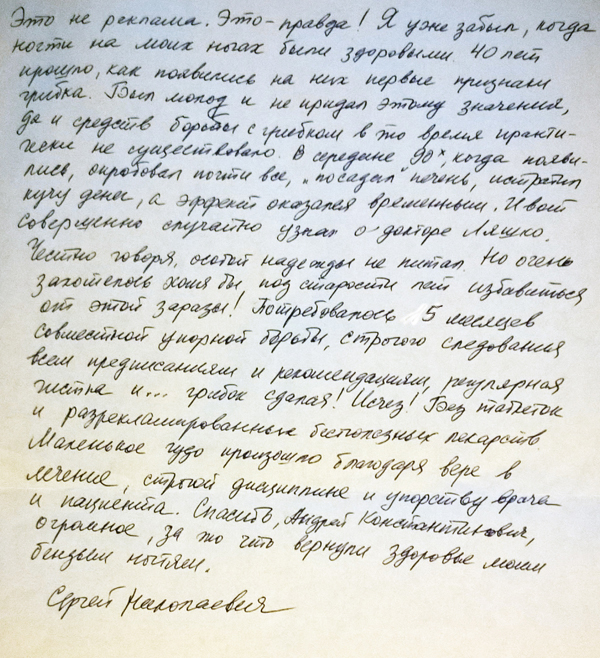 Это не реклама. Это - правда! Я уже забыл, когда
ногти на моих ногах были здоровыми. 40 лет
прошло, как появились на них первые признаки
грибка. Был молод и не придал этому значения,
да и средств борьбы с грибком в то время практи-
чески не существовало. В середине 90х, когда появи-
лись, опробовал почти все, "посадил" печень, истратил
кучу денег, а эффект оказался временным. И вот
совершенно случайно узнал о докторе Ляшко.
Честно говоря, особой надежды не питал. Но очень
захотелось хотя бы под старости лет избавиться
от этой заразы! Потребовалось 15 месяцев
совместной упорной борьбы, строгого следования
всем предписаниям и рекомендациям, регулярная
чистка и... грибок сдался! Исчез! Без таблеток
и разрекламированных бесполезных лекарств.
Маленькое чудо произошло благодаря вере в
лечение, строгой дисциплине и упорству врача
и пациента. Спасибо, Андрей Константинович,
огромное, за то что вернули здоровье моим
бедным ногтям.
Сергей Николаевич